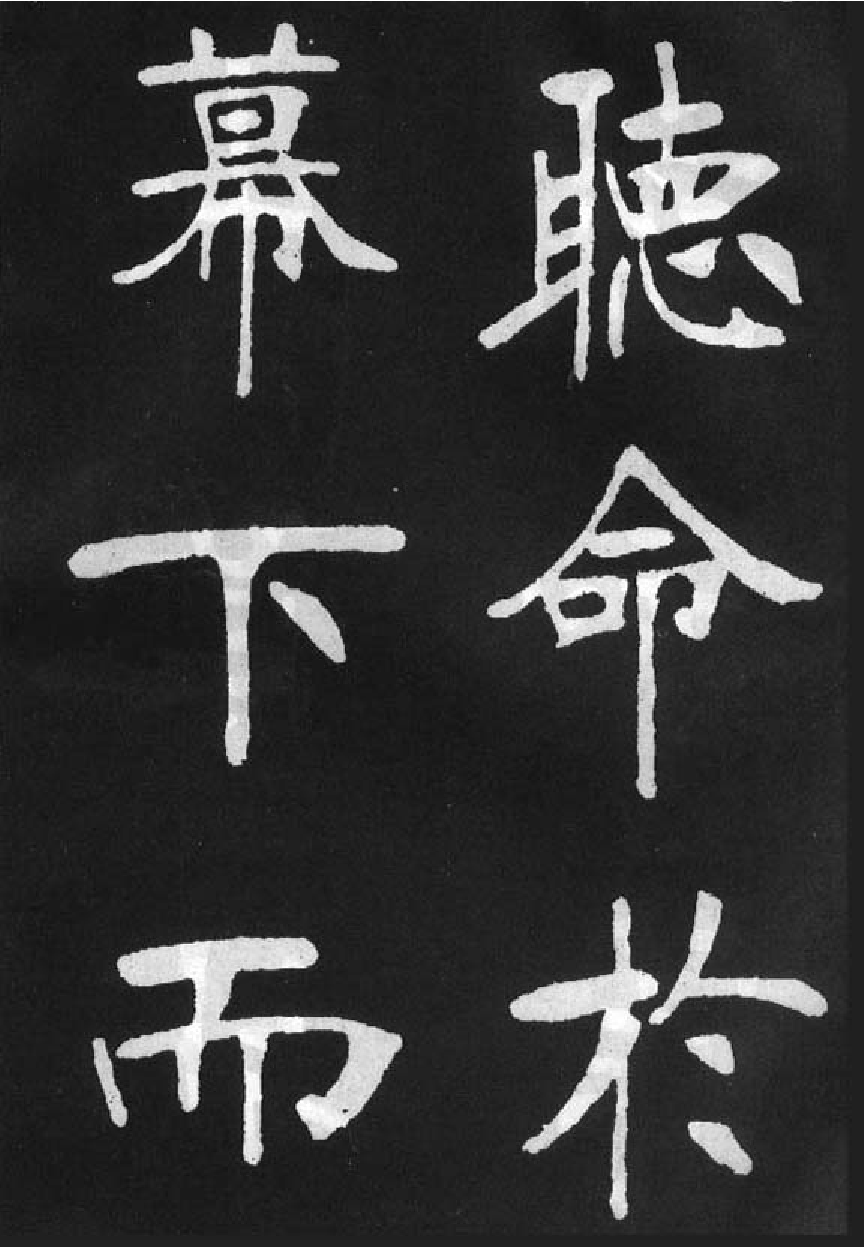 聽命於
幕下而